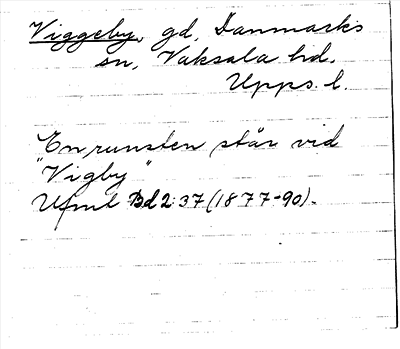 Viggeby, gd, Danmarks
sn, Vaksala hd.
Upps. l.
En runsten står vid
"Vigby"
Ufmt Bd 2:37 (1877-90).